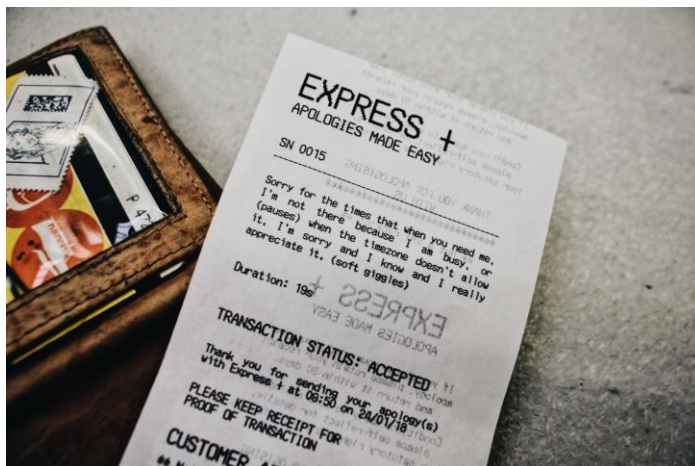 EXPRESS +
APOLOGIES MADE EASY
SN 0015
Sorry for the times that when you need me,
I'm not there because I am busy, or
(pauses) when the timezone doesn't allow
it. I'm sorry and I know and I really
appreciate it. (soft giggles)
Duration: 19s
TRANSACTION STATUS: ACCEPTED
Thank you for sending your apology(s)
with Express + at 08:50 on 24/01/18
PLEASE KEEP RECEIPT FOR
PROOF OF TRANSACTION
CUSTOMER